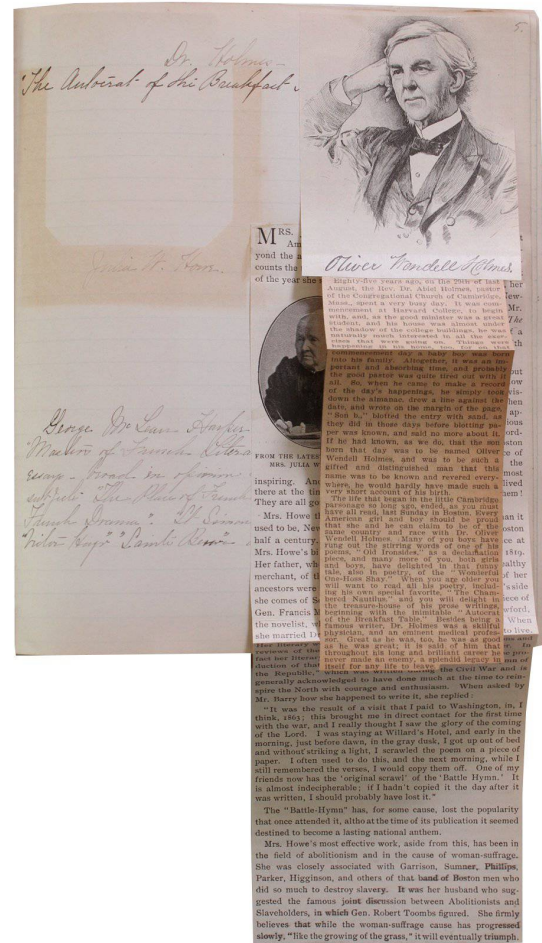 5.
Dr. Holmes—
"The Autocrat of the Breakfast
Oliver Wendell Holmes
Eighty-five years ago, on the 29th of last
August, the Rev. Dr. Abiel Holmes, pastor
of the Congregational Church of Cambridge,
Mass., spent a very busy day. It was com-
mencement at Harvard College, to begin
with, and, as the good minister was a great
student, and his house was almost under
the shadow of the college buildings, he was
naturally much interested in all the exer-
cises that were going on. Things were
happening in his house, too, for on that
commencement day a baby boy was born
into his family. Altogether, it was an im-
portant and absorbing time, and probably
the good pastor was quite tired out with it
all. So, when he came to make a record
of the day's happenings, he simply took
down the almanac, drew a line against the
date, and wrote on the margin of the page,
"Son b," blotted the entry with sand, as
they did in those days before blotting pa-
per was known, and said no more about it.
If he had known, as we do, that the son
born that day was to be named Oliver
Wendell Holmes, and was to be such a
gifted and distinguished man that his
name was to be known and revered every-
where, he would hardly have made such a
very short account of his birth.
The life that began in the little Cambridge
parsonage so long ago, ended, as you must
have all read, last Sunday in Boston. Every
American girl and boy should be proud
that she and he can claim to be of the
same country and race with Dr. Oliver
Wendell Holmes. Many of you boys have
rung out the stirring words of one of his
poems, "Old Ironsides," as a declamation
piece, and many more of you, both girls
and boys, have delighted in that funny
tale, also in poetry, of the "Wonderful
One-Hoss Shay." When you age older you
will want to read all his poetry, includ-
ing his own special favorite, "The Cham-
bered Nautilus," and you will delight in
the treasure-house of his prose writings,
beginning with the inimitable "Autocrat
of the Breakfast Table." Besides being a
famous writer, Dr. Holmes was a skillful
physician, and an eminent medical profes-
sor. Great as he was, too, he was as good
as he was great; it is said of him that
throughout his long and brilliant career he
never made an enemy, a splendid legacy in
itself for any life to leave.
MRS.
Am
yond the a
counts tha
of the year she
FROM THE LATES
MRS. JULIA W
inspiring. And
there at the tim
They are all go
Mrs. Howe
used to be, New
half a century.
Mrs. Howe's bi
Her father, wh
merchant, of th
ancestors were
she comes of S
Gen. Francis M
the novelist, w
she married Dr
her
Mr.
The
of a
1819.
of her
's side
iece of
wford,
When
to live,
Julia W. Howe
George McLean Harper
Masters of French Litera
the Republic," which was written during the Civil War and is
generally acknowledged to have done much at the time to rein-
spire the North with courage and enthusiasm. When asked by
Mr. Barry how she happened to write it, she replied:
"It was the result of a visit that I paid to Washington, in, I
think, 1863; this brought me in direct contact for the first time
with the war, and I really thought I saw the glory of the coming
of the Lord. I was staying at Willard's Hotel, and early in the
morning, just before dawn, in the gray dusk, I got up out of bed
and without striking a light, I scrawled the poem on a piece of
paper. I often used to do this, and the next morning, while I
still remembered the verses, I would copy them off. One of my
friends now has the 'original scrawl' of the 'Battle Hymn.' It
is almost indecipherable; if I hadn't copied it the day after it
was written, I should probably have lost it."
The "Battle-Hymn" has, for some cause, lost the popularity
that once attended it, altho at the time of its publication it seemed
destined to become a lasting national anthem.
Mrs. Howe's most effective work, aside from this, has been in
the field of abolitionism and in the cause of woman-suffrage.
She was closely associated with Garrison, Sumner, Phillips,
Parker, Higginson, and others of that band of Boston men who
did so much to destroy slavery. It was her husband who sug-
gested the famous joint discussion between Abolitionists and
Slaveholders, in which Gen. Robert Toombs figured. She firmly
believes that while the woman-suffrage cause has progressed
slowly, "like the growing of the grass," it will eventually triumph.